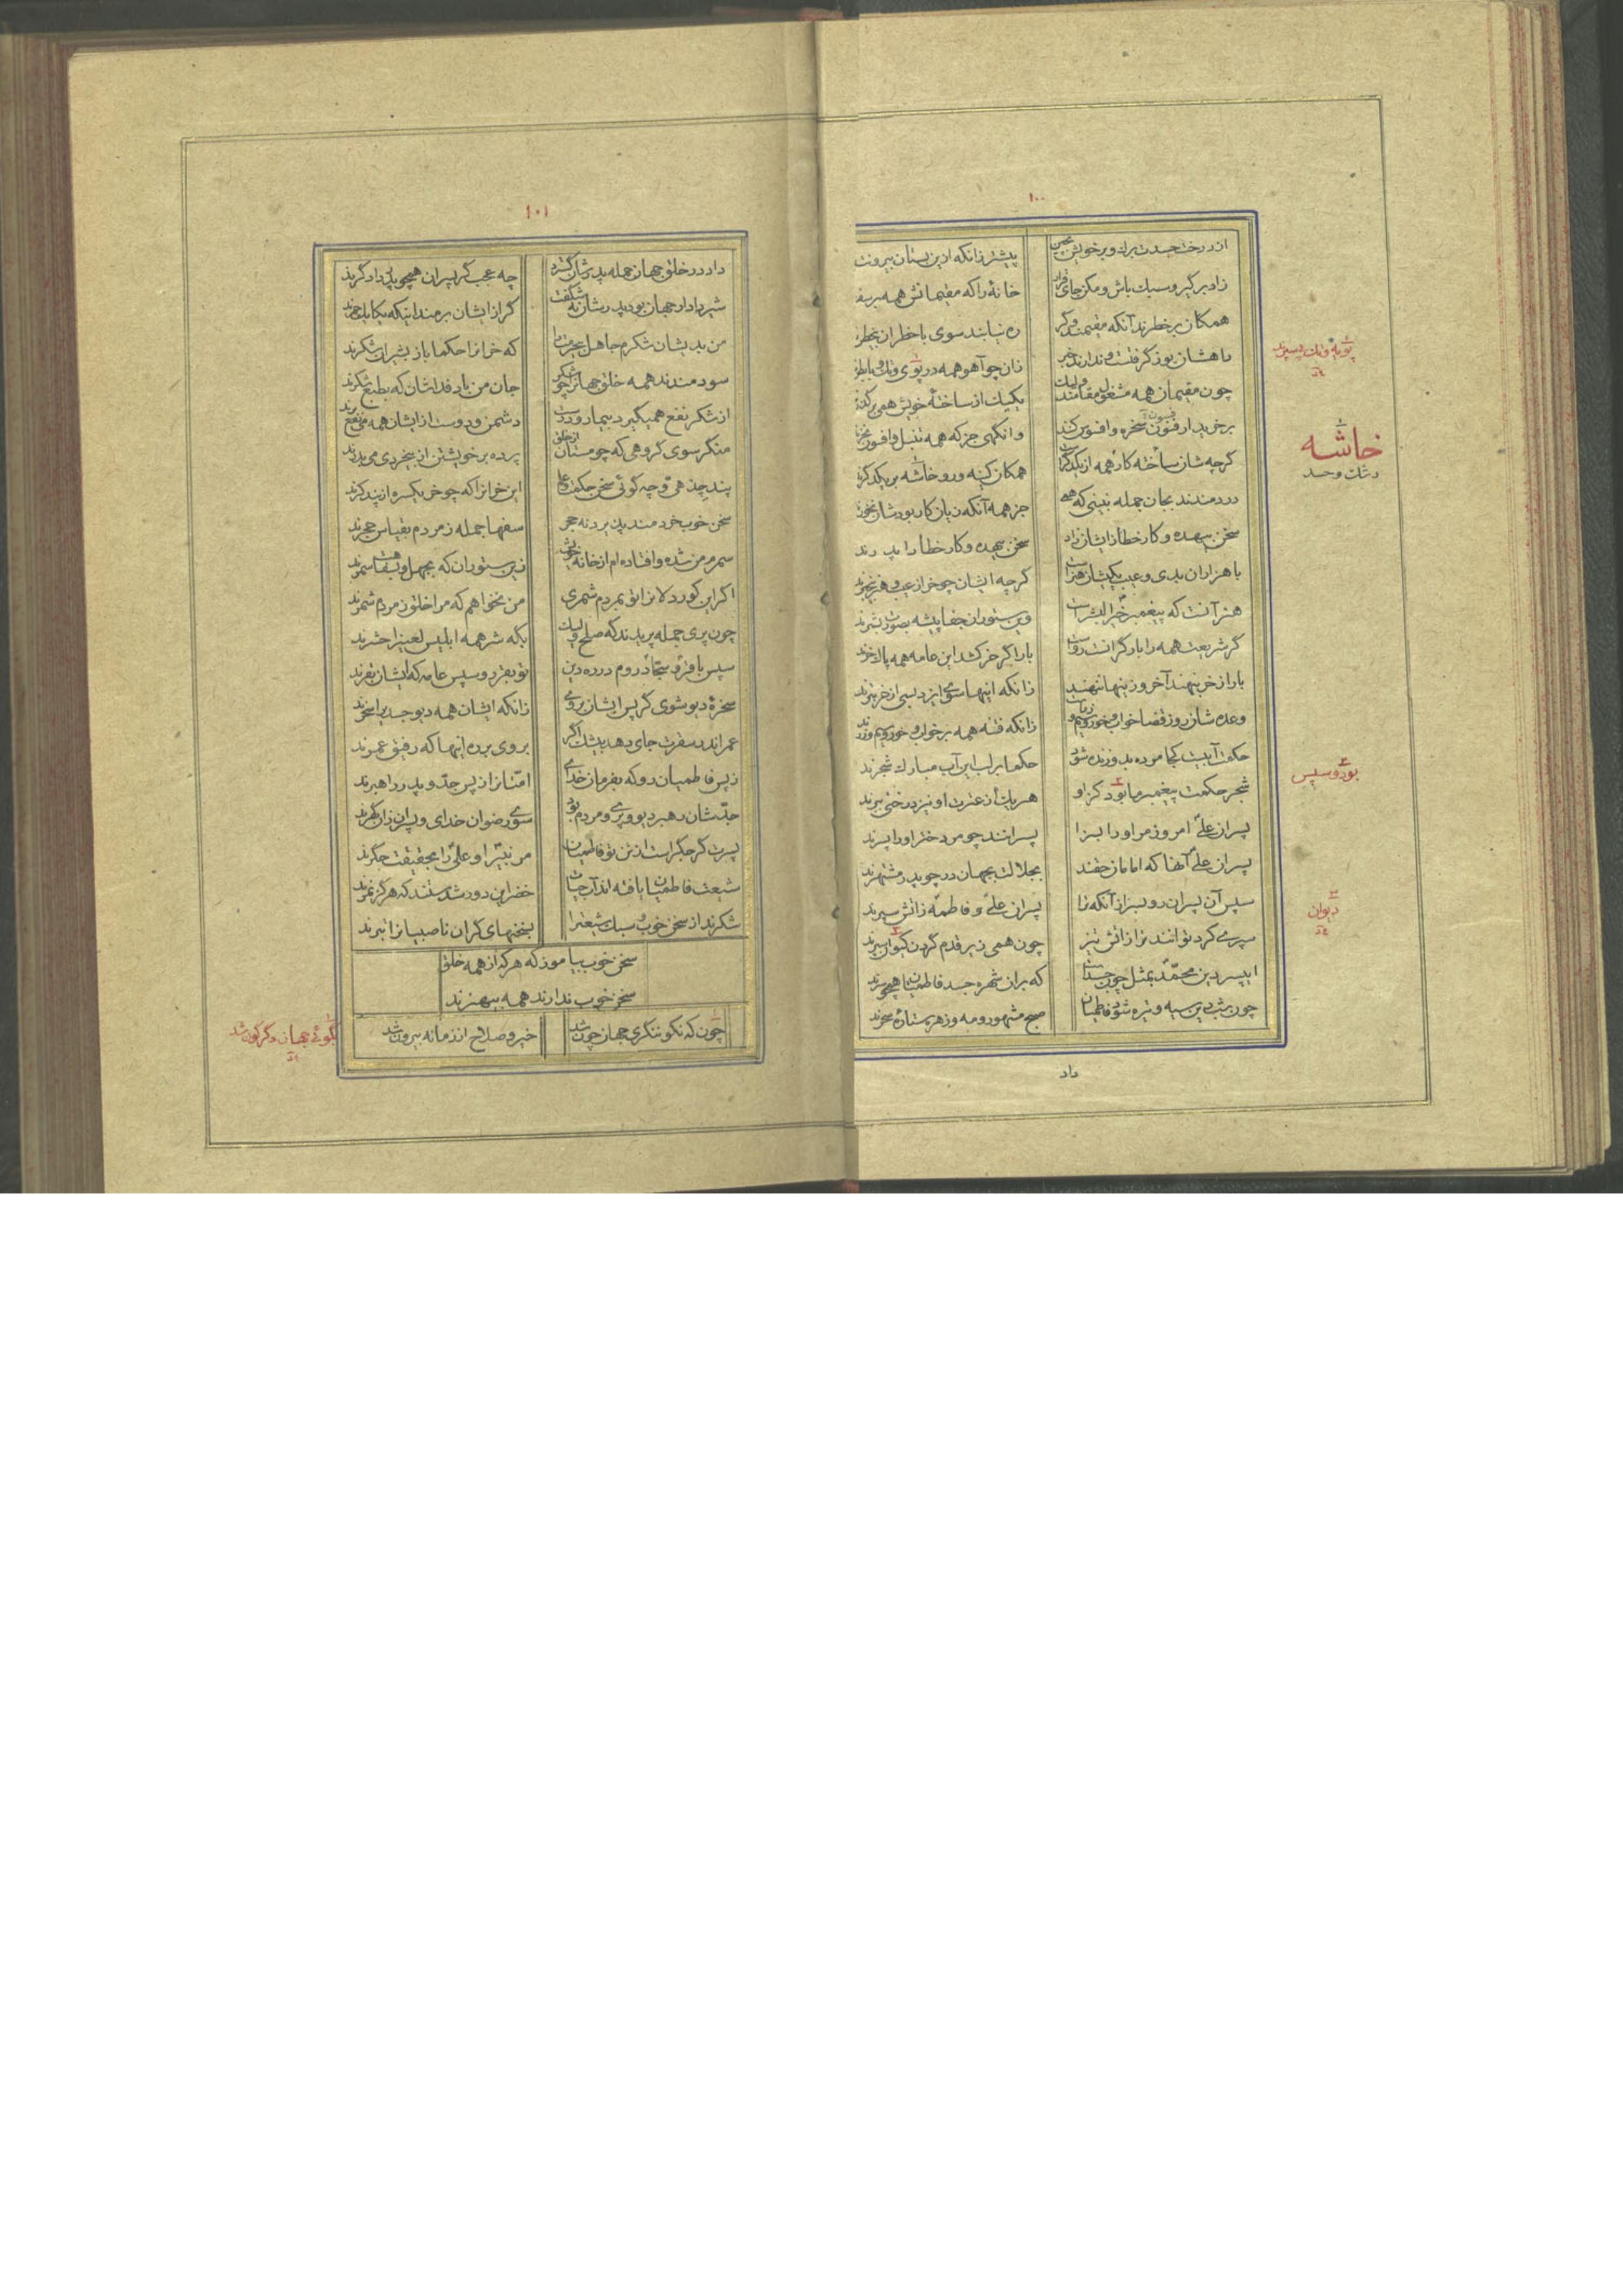 ۱۰۰
از درخت جسدت برك و بر خويش بچين پيشتر زانكه ازين بستان بيرونت
زاد بر گير و سبك باش و مكن جاى قرار خانۀ را كه مقيمانش همه بر سفر
همگان بر خطرند آنكه مقيمند و گر ره نيابند سوى با خطران بى خطر
راهشان يوز گرفتست و ندارند خبر زان چو آهو همه در پوى و تك و با بطر
چون مقيمان همه مشغول مقامند وليك يكيك از ساختۀ خويش همى برگذر
بر خريدار فسون سخره و افسوس كنند وانگهى جز كه همه تنبل و افسون نخر
گرچه شان ساخته كار همه از يكدگر است همگان كينه ور و خاشه بر يكدگر
دردمندند بجان جمله نبينى كه همه جز همه آنكه زيان كار بودشان نخور
سخن بيهده و كار خطا زايشان زاد سخن بيهده و كار خطا را پدرند
با هزاران بدى و عيب يكيشان هنراست گرچه ايشان چو خر از عيب و هنر بيخبرند
هنر آنست كه پيغمبر خير البشر است وين ستوران جفا پيشه بصورت بشرند
گر شريعت همه را بار گرانست رواست بار اگر خر كشد اين عامه همه پاك خرند
بار از خر بنهند آخر و زينها ننهند زانكه اينها سوى ايزد بسى از خر بترند
وعده شان روز قضا خواب و خور و سيم و زر است زانكه فتنه همه بر خواب و خور و سيم و زرند
حكمت آبيست كجا مرده بدو زنده شود حكما بر لب اين آب مبارك شجرند
شجر حكمت پيغمبر ما بود كزاو هر يك از عترت او نيز درختى ببرند
پسران على امروز مر او را بسزا پسرانند چو مر دختر او را پسرند
پسران على آنها كه امامان حقند بجلالت بجهان در چو پدر مشتهرند
سپس آن پسران رو پسرا ز آنكه ترا پسران على و فاطمه ز آتش سپرند
سپرى كرد توانند ترا ز آتش تيز چون همى زير قدم گردن كيوان سپرند
اى پسر دين محمد بمثل چون جسديست كه بر آن شهره جسد فاطميان همچو سرند
چون بشب دين سيه و تيره شود فاطميان صبح مشهور و مه و زهره ستاره سحرند
داد
پويه و تك و سپرند
خاشه
رشك و حسد
بود و سپس
ديوان
۱۰۱
داد در خلق جهان جمله پدرشان گسترد چه عجب گر پسران همچو پدر داد گرند
شير دادار جهان بود پدرشان نه شگفت گر از ايشان برمند اينكه يكايك حمرند
من بديشان شكرم جاهل بيحرمت را كه خرانرا حكما باز بشيران شكرند
سودمندند همه خلق جهانرا چو شكر جان من باد فداشان كه بطبع شكرند
از شكر نفع همى گيرد بيمار و درست دشمن و دوست از ايشان همه مى نفع برند
منگر سوى گروهى كه چو مستان از خلق پرده بر خويشتن از بيخردى مى بدرند
پند چه دهى و چه گوئى سخن حكمت و علم اين خرانرا كه چو خر يكسره از پند كرند
سخن خوب خردمند پذيرد نه حجر سفها جمله ز مردم بقياس حجرند
سمر من شده و افتاده ام از خانه خويش زين ستوران كه بجهل و سفاهت سمرند
اگر اين كور دلانرا تو بمردم شمرى من نخواهم كه مرا خلق ز مردم شمرند
چون پرى جمله بپرند گه صلح و ليك بگه شر همه ابليس لعين را حشرند
سپس باقر و سجاد روم در ره دين تو بقر رو سپس عامه كه ايشان بقرند
سخرۀ ديو شوى گر پس ايشان بروى زانكه ايشان همه ديو جسدى را سخرند
عمر اندر سقرت جاى دهد بيشك اگر بروى برره اينها كه رفيق عمرند
ز پس فاطميان رو كه بفرمان خداى امتانرا ز پس جد و پدر راهبرند
جدشان رهبر ديو و پرى و مردم بود سوى رضوان خداى و پسران زان گهرند
پسرت گر جگر است از تن تو فاطميان مر نبى را و على را بحقيقت جگرند
شيعت فاطميان يافته اند آب حيات خضر اين دور شدستند كه هرگز نمرند
شكرند از سخن خوب و سبك شيعت را بسخنهاى گران ناصبيانرا تبرند
سخن خوب بياموز كه هر كه از همه خلق
سخن خوب ندارند همه بيهنرند
چون كه نكو ننگرى جهان چون شد خير و صلاح از زمانه بيرون شد
نگوئى جهان دگرگون شد